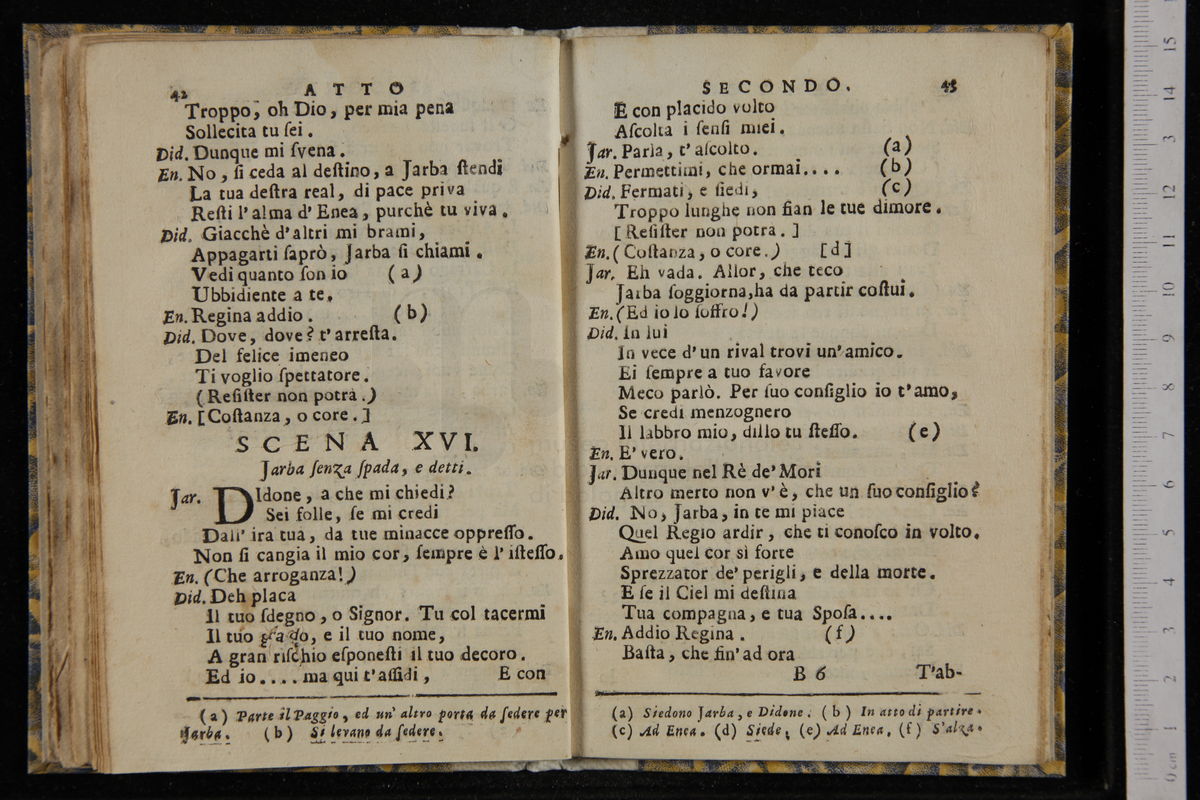 42 ATTO
Troppo, oh Dio, per mia pena
Sollecita tu ſei.
Did. Dunque mi ſvena.
En. No, ſi ceda al deſtino, a Jarba ſtendi
La tua deſtra real, di pace priva
Reſti l'alma d'Enea, purchè tu viva.
Did. Giacchè d'altri mi brami,
Appagarti ſaprò, Jarba ſi chiami.
Vedi quanto ſon io (a)
Ubbidiente a te.
En. Regina addio. (b)
Did. Dove, dove? t'arreſta.
Del felice imeneo
Ti voglio ſpettatore.
(Reſiſter non potrà.)
En. [Coſtanza, o core.]
SCENA XVI.
Jarba ſenza ſpada, e detti.
Jar. DIdone, a che mi chiedi?
Sei folle, ſe mi credi
Dall' ira tua, da tue minacce oppreſſo.
Non ſi cangia il mio cor, ſempre è l'iſteſſo.
En. (Che arroganza!)
Did. Deh placa
Il tuo ſdegno, o Signor. Tu col tacermi
Il tuo grado, e il tuo nome,
A gran riſchio eſponeſti il tuo decoro.
Ed io.... ma qui t'aſſidi, E con
(a) Parte il Paggio, ed un' altro porta da ſedere per
Jarba. (b) Si levano da ſedere.
SECONDO. 43
E con placido volto
Aſcolta i ſenſi miei.
Jar. Parla, t'aſcolto. (a)
En. Permettimi, che ormai.... (b)
Did. Fermati, e ſiedi, (c)
Troppo lunghe non fian le tue dimore.
[Reſiſter non potra.]
En. (Coſtanza, o core.) [d]
Jar. Eh vada. Allor, che teco
Jarba ſoggiorna, ha da partir coſtui.
En. (Ed io lo ſoffro!)
Did. In lui
In vece d'un rival trovi un'amico.
Ei ſempre a tuo favore
Meco parlò. Per ſuo conſiglio io t'amo,
Se credi menzognero
Il labbro mio, dillo tu ſteſſo. (e)
En. E' vero.
Jar. Dunque nel Rè de' Mori
Altro merto non v'è, che un ſuo conſiglio?
Did. No, Jarba, in te mi piace
Quel Regio ardir, che ti conoſco in volto.
Amo quel cor sì forte
Sprezzator de' perigli, e della morte.
E ſe il Ciel mi deſtina
Tua compagna, e tua Spoſa....
En. Addio Regina. (f)
Baſta, che fin' ad ora
B 6 T'ab-
(a) Siedono Jarba, e Didone. (b) In atto di partire.
(c) Ad Enea. (d) Siede, (e) Ad Enea. (f) S'alza.
0 cm 1 2 3 4 5 6 7 8 9 10 11 12 13 14 15